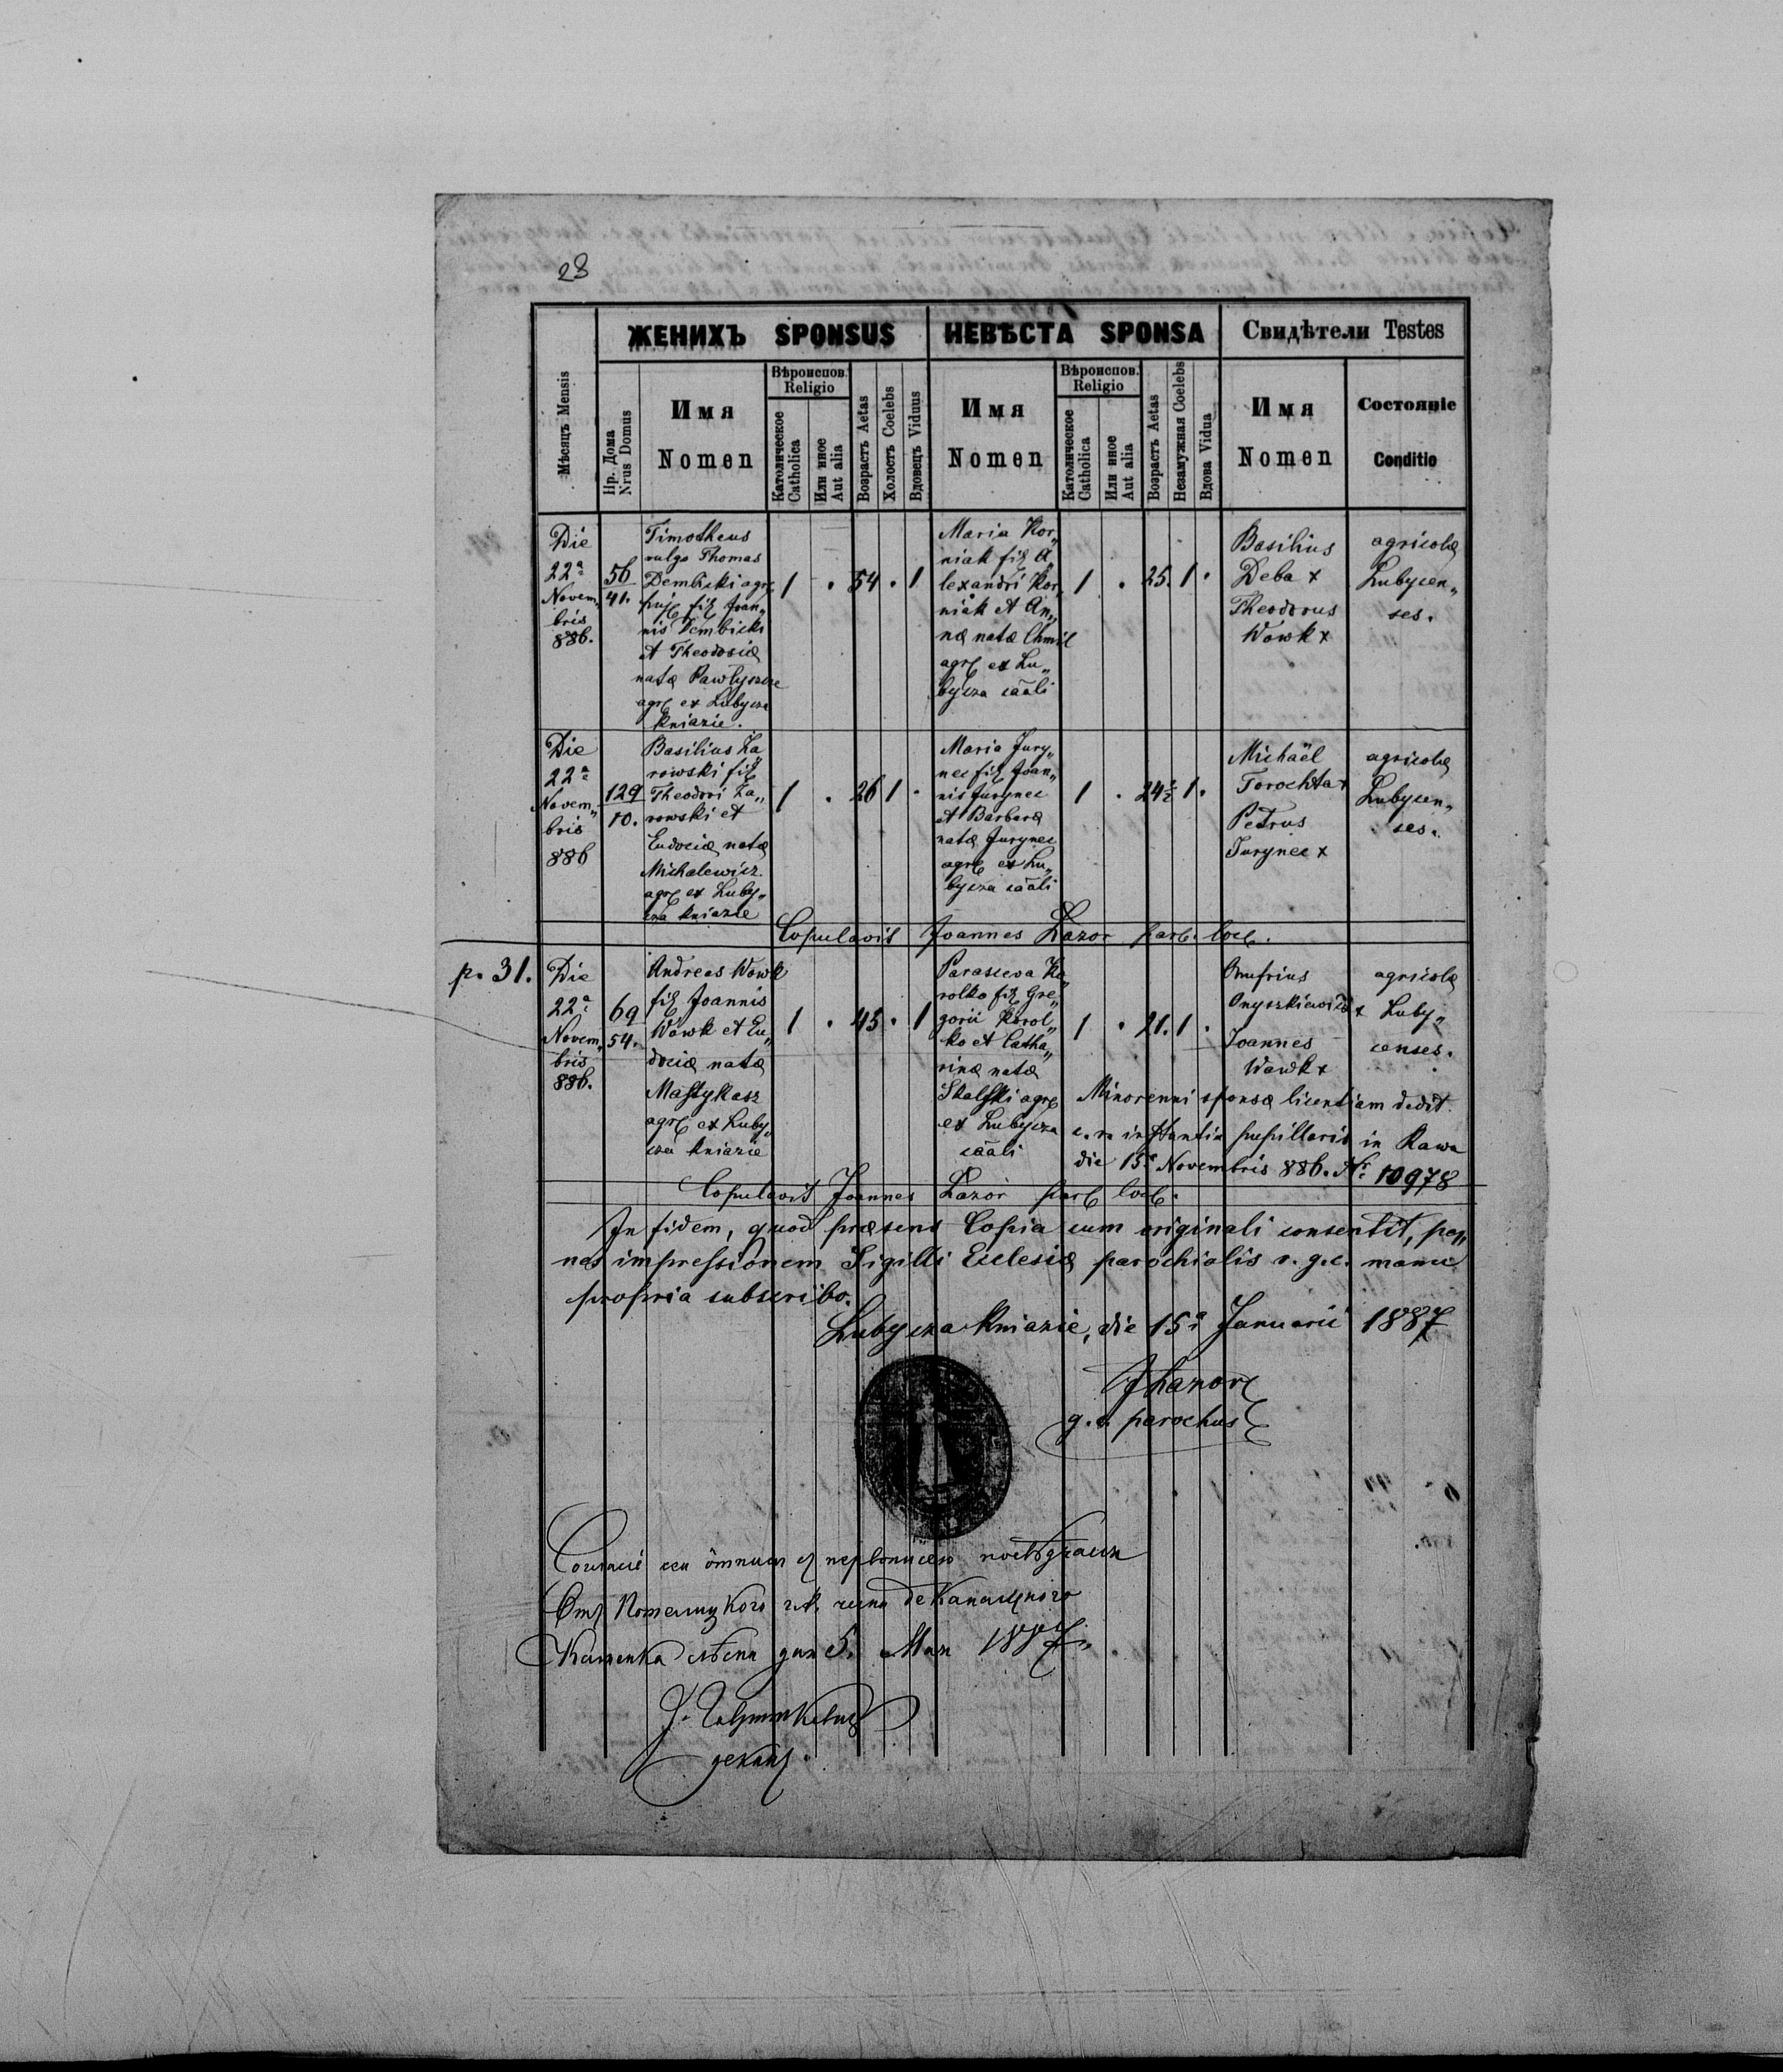 28
ЖЕНИХЪ SPONSUS
НЕВѢСТА SPONSA
Свидѣтели Testes
Мѣсяцъ Mensis
Нр. Дома
Nrus Domus
Имя
Nomen
Вѣроиспов.
Religio
Католическое
Catholica
Или иное
Aut alia
Возрастъ Aetas
Холостъ Coelebs
Вдовецъ Viduus
Имя
Nomen
Вѣроиспов.
Religio
Католическое
Catholica
Или иное
Aut alia
Возрастъ Aetas
Незамужная Coelebs
Вдова Vidua
Имя
Nomen
Состояніе
Conditio
Die
22ª
Novem„
bris
886.
56
41.
Timotheus
vulgo Thomas
Dembicki agr.
fil. Joan„
nis Dembicki
et Theodosiæ
natæ Pawlyszcze
agr. ex Lubycza
kniazie.
1 . 54 . 1
Maria Kor„
niak fil. A„
lexandri Kor„
niak et An„
næ natæ Chmil
agr. ex Lu„
bycza caāli
1 . 25. 1 .
Basilius
Deba x
Theodorus
Wowk x
agricolæ
Lubycen„
ses.
Die
22ª
Novem„
bris
886
129
10.
Basilius Za„
rowski fil.
Theodori Za„
rowski et
Eudociæ natæ
Michalewicz
agr. ex Luby„
cza kniazie
1 . 26 1 .
Maria Jury„
nec fil. Joan„
nis Jurynec
et Barbaræ
natæ Jurynec
agr. ex Lu„
bycza caāli
1 . 24½ 1 .
Michaël
Torochta x
Petrus
Jurynec x
agricolæ
Lubycen„
ses.
Copulavit Joannes Lazor par. loc.
p. 31.
Die
22ª
Novem„
bris
886.
69
54.
Andreas Wowk
fil. Joannis
Wowk et Eu„
dociæ natæ
Mastykasz
agr. ex Luby„
cza kniazie
1 . 45 . 1
Parasceva Ko„
rolko fil. Gre„
gorii Korol„
ko et Catha„
rinæ natæ
Skalski agr.
ex Lubycza
caāli
1 . 21. 1 .
Onufrius
Onyszkiewicz x
Joannes
Wowk x
agricolæ
Luby„
censes.
Minorenni sponsæ licentiam dedit
c. r. instantia pupillaris in Rawa
die 15ª Novembris 886. Nr. 10978
Copulavit Joannes Lazor par. loc.
In fidem, quod præsens Copia cum originali consentit, pe„
nes impressionem Sigilli Ecclesiæ parochialis r. g. c. manu
propria subscribo.
Lubycza kniazie, die 15ª Januarii 1887
JLazor
g. c. parochus
Согласіе сеи отписи съ первописею
Отъ чина деканального
Каменка дня 5. Мая 1887.
деканъ.